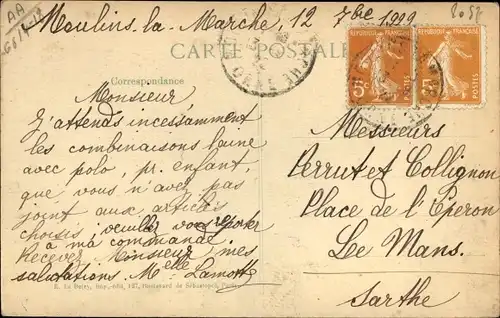 Moulins-la-Marche, 12 7bre 1922
CARTE POSTALE
Correspondance
Monsieur
J'attends incessamment
les combinaisons laine
avec polo, pr. enfant,
que vous n'avez pas
joint aux articles
choisis, veuillez vous reporter
à ma commande.
Recevez, Monsieur mes
salutations. Melle Lamotte
REPUBLIQUE FRANÇAISE
5c
POSTES
REPUBLIQUE FRANÇAISE
5c
POSTES
ORNE
Messieurs
Perrut et Collignon
Place de l'Éperon
Le Mans.
Sarthe
E. Le Deley, Imp.-édit., 127, Boulevard de Sébastopol, Paris
AA